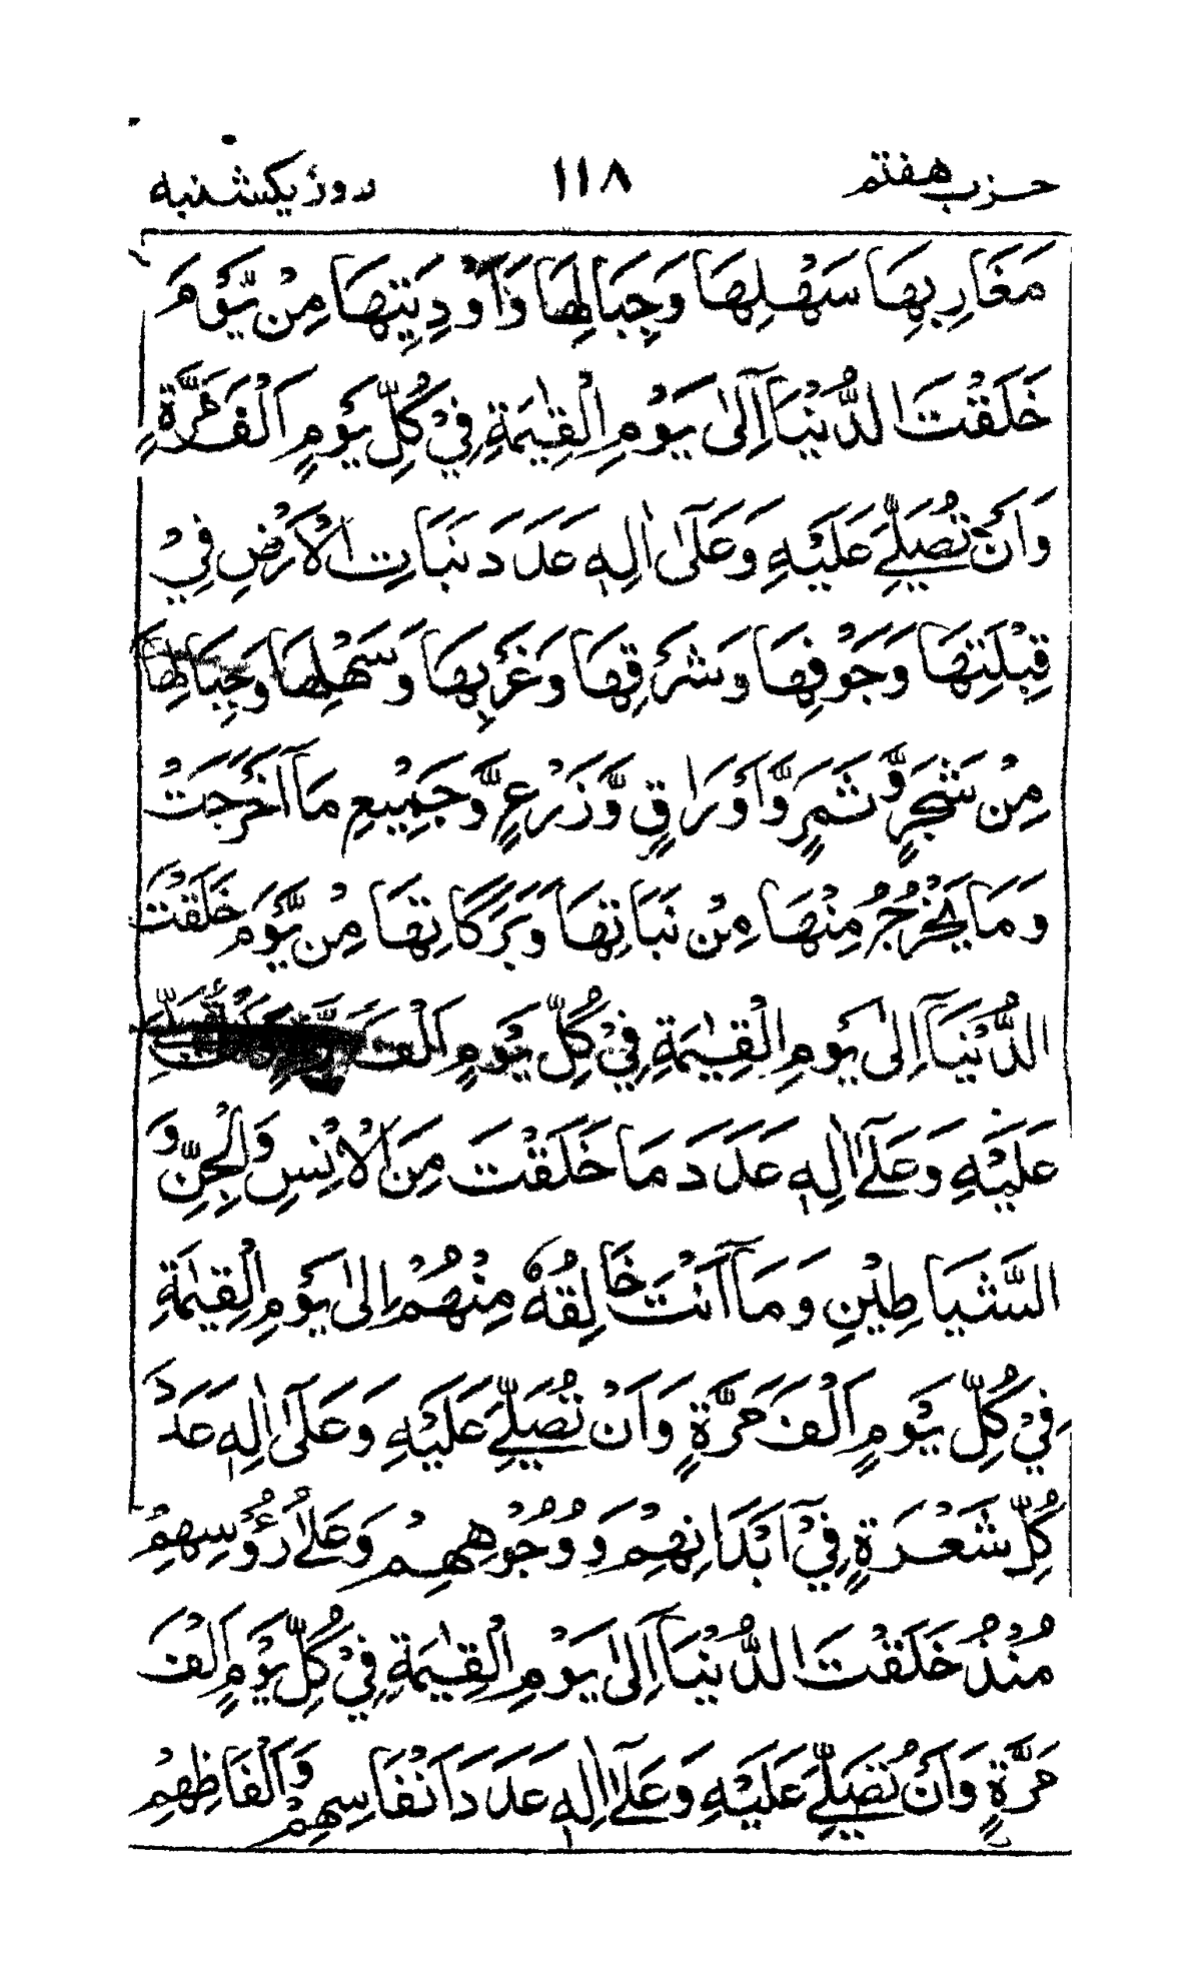 حزب هفتم ١١٨ روز يكشنبه
مَغَارِبِهَا سَهْلِهَا وَجِبَالِهَا وَاَوْدِيَتِهَا مِنْ يَّوْمَ
خَلَقْتَ الدُّنْيَآ اِلٰى يَوْمِ الْقِيٰمَةِ فِيْ كُلِّ يَوْمٍ اَلْفَ مَرَّةٍ
وَاَنْ تُصَلِّيَ عَلَيْهِ وَعَلٰٓى اٰلِهٖ عَدَدَ نَبَاتِ الْاَرْضِ فِيْ
قِبْلَتِهَا وَجَوْفِهَا وَشَرْقِهَا وَغَرْبِهَا وَسَهْلِهَا وَجِبَالِهَا
مِنْ شَجَرٍ وَّثَمَرٍ وَّاَوْرَاقٍ وَّزَرْعٍ وَّجَمِيْعِ مَآ اَخْرَجَتْ
وَمَا يَخْرُجُ مِنْهَا مِنْ نَبَاتِهَا وَبَرَكَاتِهَا مِنْ يَّوْمَ خَلَقْتَ
الدُّنْيَآ اِلٰى يَوْمِ الْقِيٰمَةِ فِيْ كُلِّ يَوْمٍ اَلْفَ
عَلَيْهِ وَعَلٰٓى اٰلِهٖ عَدَدَ مَا خَلَقْتَ مِنَ الْاِنْسِ وَالْجِنِّ وَ
الشَّيَاطِيْنِ وَمَآ اَنْتَ خَالِقُهٗ مِنْهُمْ اِلٰى يَوْمِ الْقِيٰمَةِ
فِيْ كُلِّ يَوْمٍ اَلْفَ مَرَّةٍ وَاَنْ تُصَلِّيَ عَلَيْهِ وَعَلٰٓى اٰلِهٖ عَدَدَ
كُلِّ شَعْرَةٍ فِيْٓ اَبْدَانِهِمْ وَوُجُوْهِهِمْ وَعَلٰى رُءُوْسِهِمْ
مُنْذُ خَلَقْتَ الدُّنْيَآ اِلٰى يَوْمِ الْقِيٰمَةِ فِيْ كُلِّ يَوْمٍ اَلْفَ
مَرَّةٍ وَاَنْ تُصَلِّيَ عَلَيْهِ وَعَلٰٓى اٰلِهٖ عَدَدَ اَنْفَاسِهِمْ وَاَلْفَاظِهِمْ